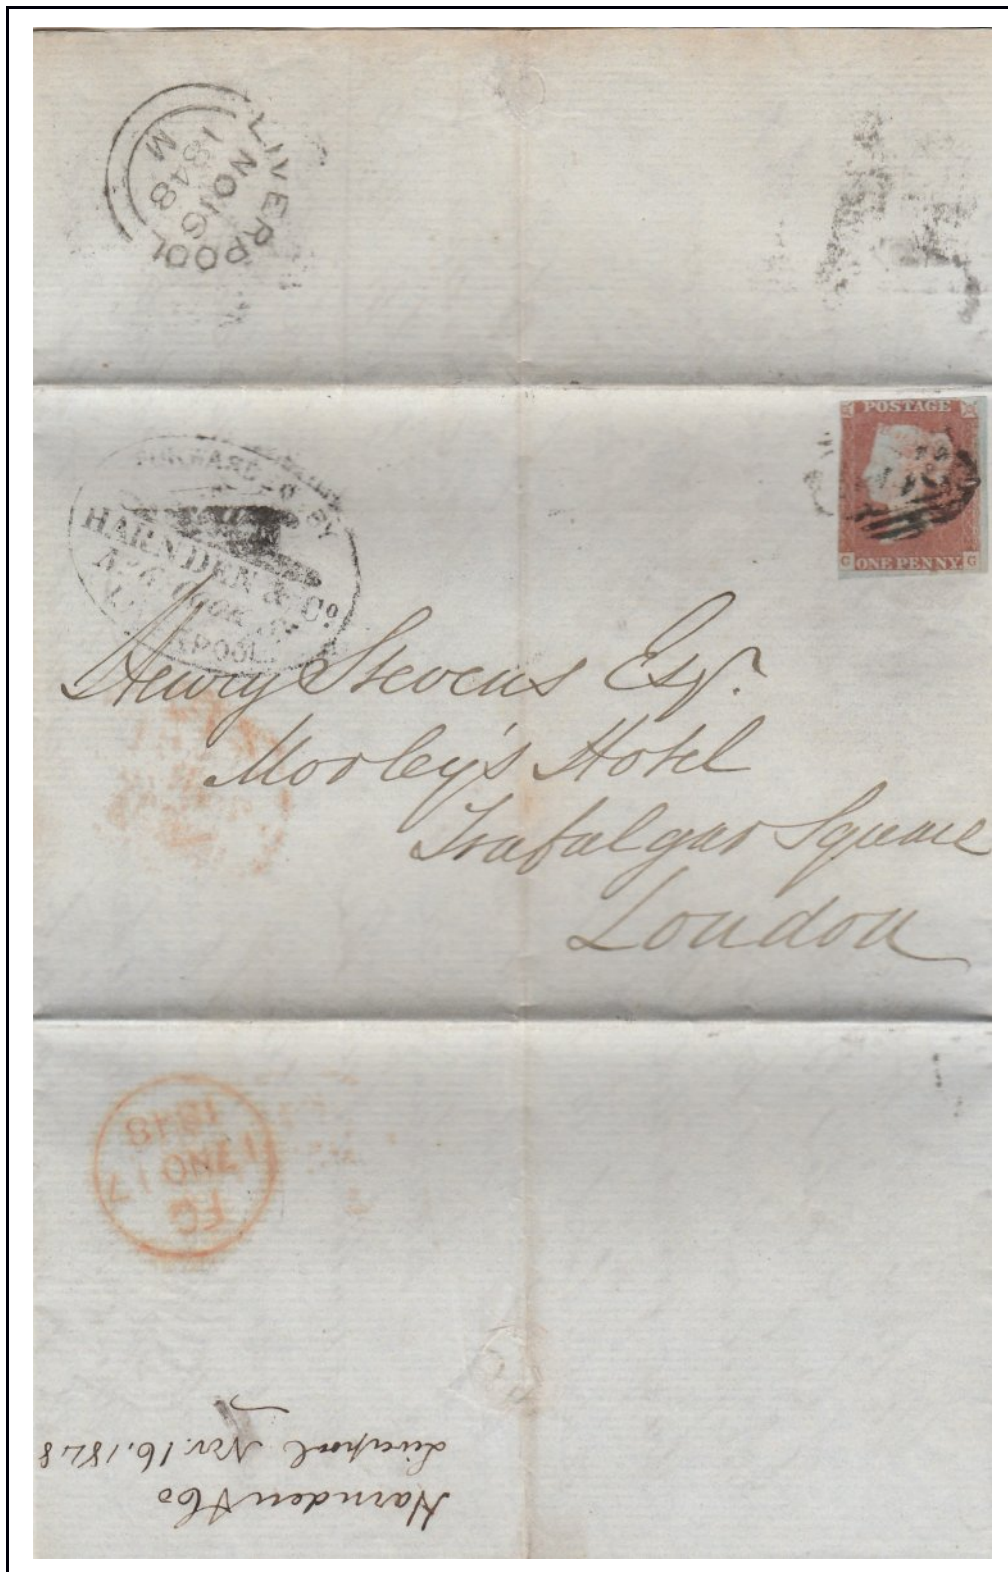 LIVERPOOL
NO 16
1848
M
POSTAGE
C ONE PENNY G
FORWARDED BY
HARNDEN & Co
COOK St
LIVERPOOL
Henry Stevens Esqr.
Morley's Hotel
Trafalgar Square
London
FG
17 NO 17
1848
Harnden & Co
Liverpool Nov. 16. 1848